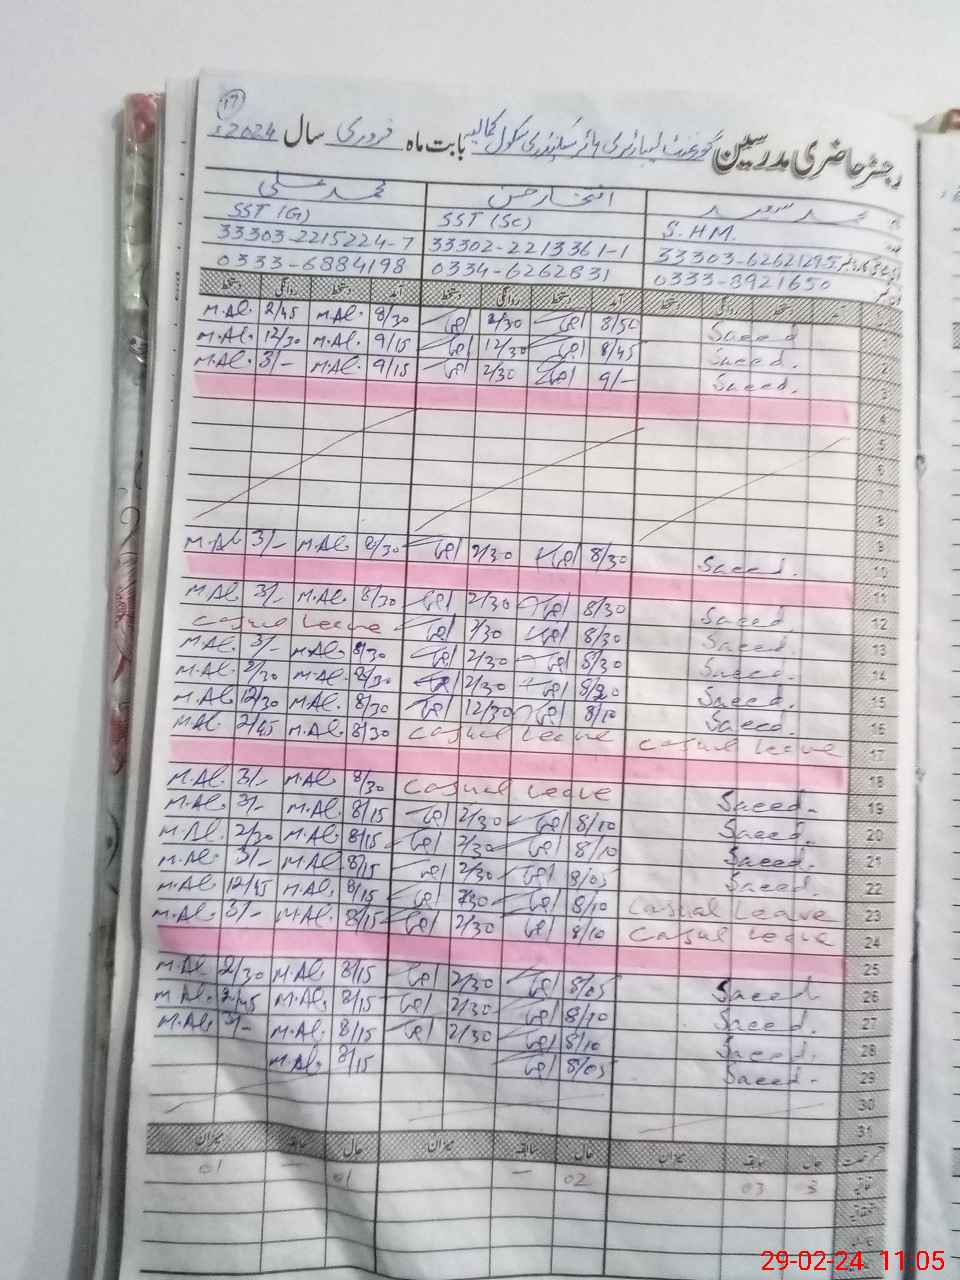 17
رجسٹر حاضری مدرسین گورنمنٹ لیبارٹری ہائر سیکنڈری سکول کمالیہ بابت ماہ فروری سال 2024ء
محمد سعید افتخار حسن محمد علی
S.HM. SST (SC) SST (G)
33303-6262129-5 33302-2213361-1 33303-2215224-7
0333-8921650 0334-6262831 0333-6884198
آمد دستخط روانگی دستخط آمد دستخط روانگی دستخط
1 Saeed 8/50 2/30 8/30 M.Al. 2/45 M.Al.
2 Saeed. 8/45 12/30 9/15 M.Al. 12/30 M.Al.
3 Saeed. 9/- 2/30 9/15 M.Al. 3/- M.Al.
4
5
6
7
8
9
10 Saeed. 8/30 2/30 8/30 M.Al. 3/- M.Al
11
12 Saeed 8/30 2/30 8/30 M.Al. 3/- M.Al
13 Saeed. 8/30 2/30 casual Leave
14 Saeed. 8/30 2/30 8/30 M.Al. 3/- M.Al.
15 Saeed. 8/30 2/30 8/30 M.Al. 2/30 M.Al.
16 Saeed. 8/10 12/30 8/30 M.Al. 12/30 M.Al
17 casual leave casual leave 8/30 M.Al. 2/45 M.Al.
18
19 Saeed. casual leave 8/30 M.Al. 3/- M.Al.
20 Saeed. 8/10 2/30 8/15 M.Al. 3/- M.Al.
21 Saeed. 8/10 2/30 8/15 M.Al. 2/30 M.Al.
22 Saeed. 8/05 2/30 8/15 M.Al. 3/- M.Al.
23 Casual Leave 8/10 8/15 M.Al. 12/45 M.Al.
24 Casual leave 8/10 2/30 8/15 M.Al. 3/- M.Al.
25
26 Saeed 8/05 2/30 8/15 M.Al. 2/30 M.Al.
27 Saeed. 8/10 2/30 8/15 M.Al. 2/45 M.Al.
28 Saeed. 8/10 2/30 8/15 M.Al. 3/- M.Al.
29 Saeed. 8/05 8/15 M.Al.
30
31
حال سابقہ میزان حال سابقہ میزان حال سابقہ میزان
3 03 02 — 01 — 01
29-02-24 11:05